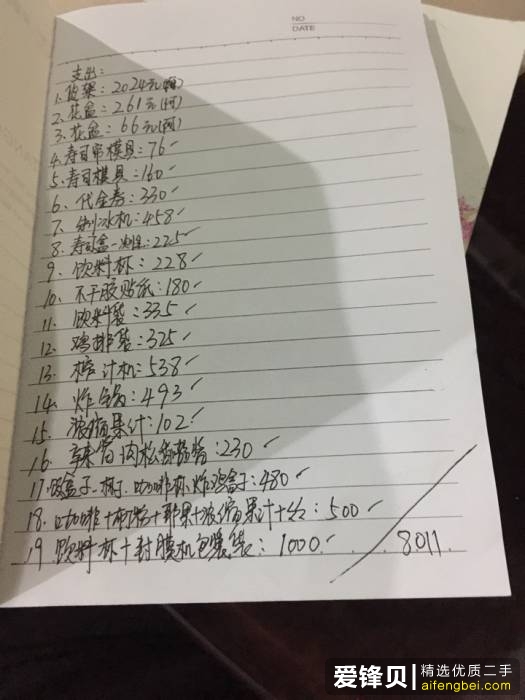 NO
DATE
支出:
1. 货架: 2024元
2. 花盆: 261元
3. 花盆: 66元
4. 寿司帘模具: 76
5. 寿司模具: 160
6. 代金券: 330
7. 制冰机: 458
8. 寿司盒一次性: 225
9. 饮料杯: 228
10. 不干胶贴纸: 180
11. 饮料袋: 335
12. 鸡排袋: 325
13. 榨汁机: 538
14. 炸锅: 493
15. 浓缩果汁: 102
16. 肉松: 230
17. 盒子 咖啡杯 炸鸡盒子: 480
18. 咖啡+奶粉+ 果+浓缩果汁+ : 500
19. 饮料杯+封膜机包装袋: 1000 8011
爱锋贝 精选优质二手
aifengbei.com